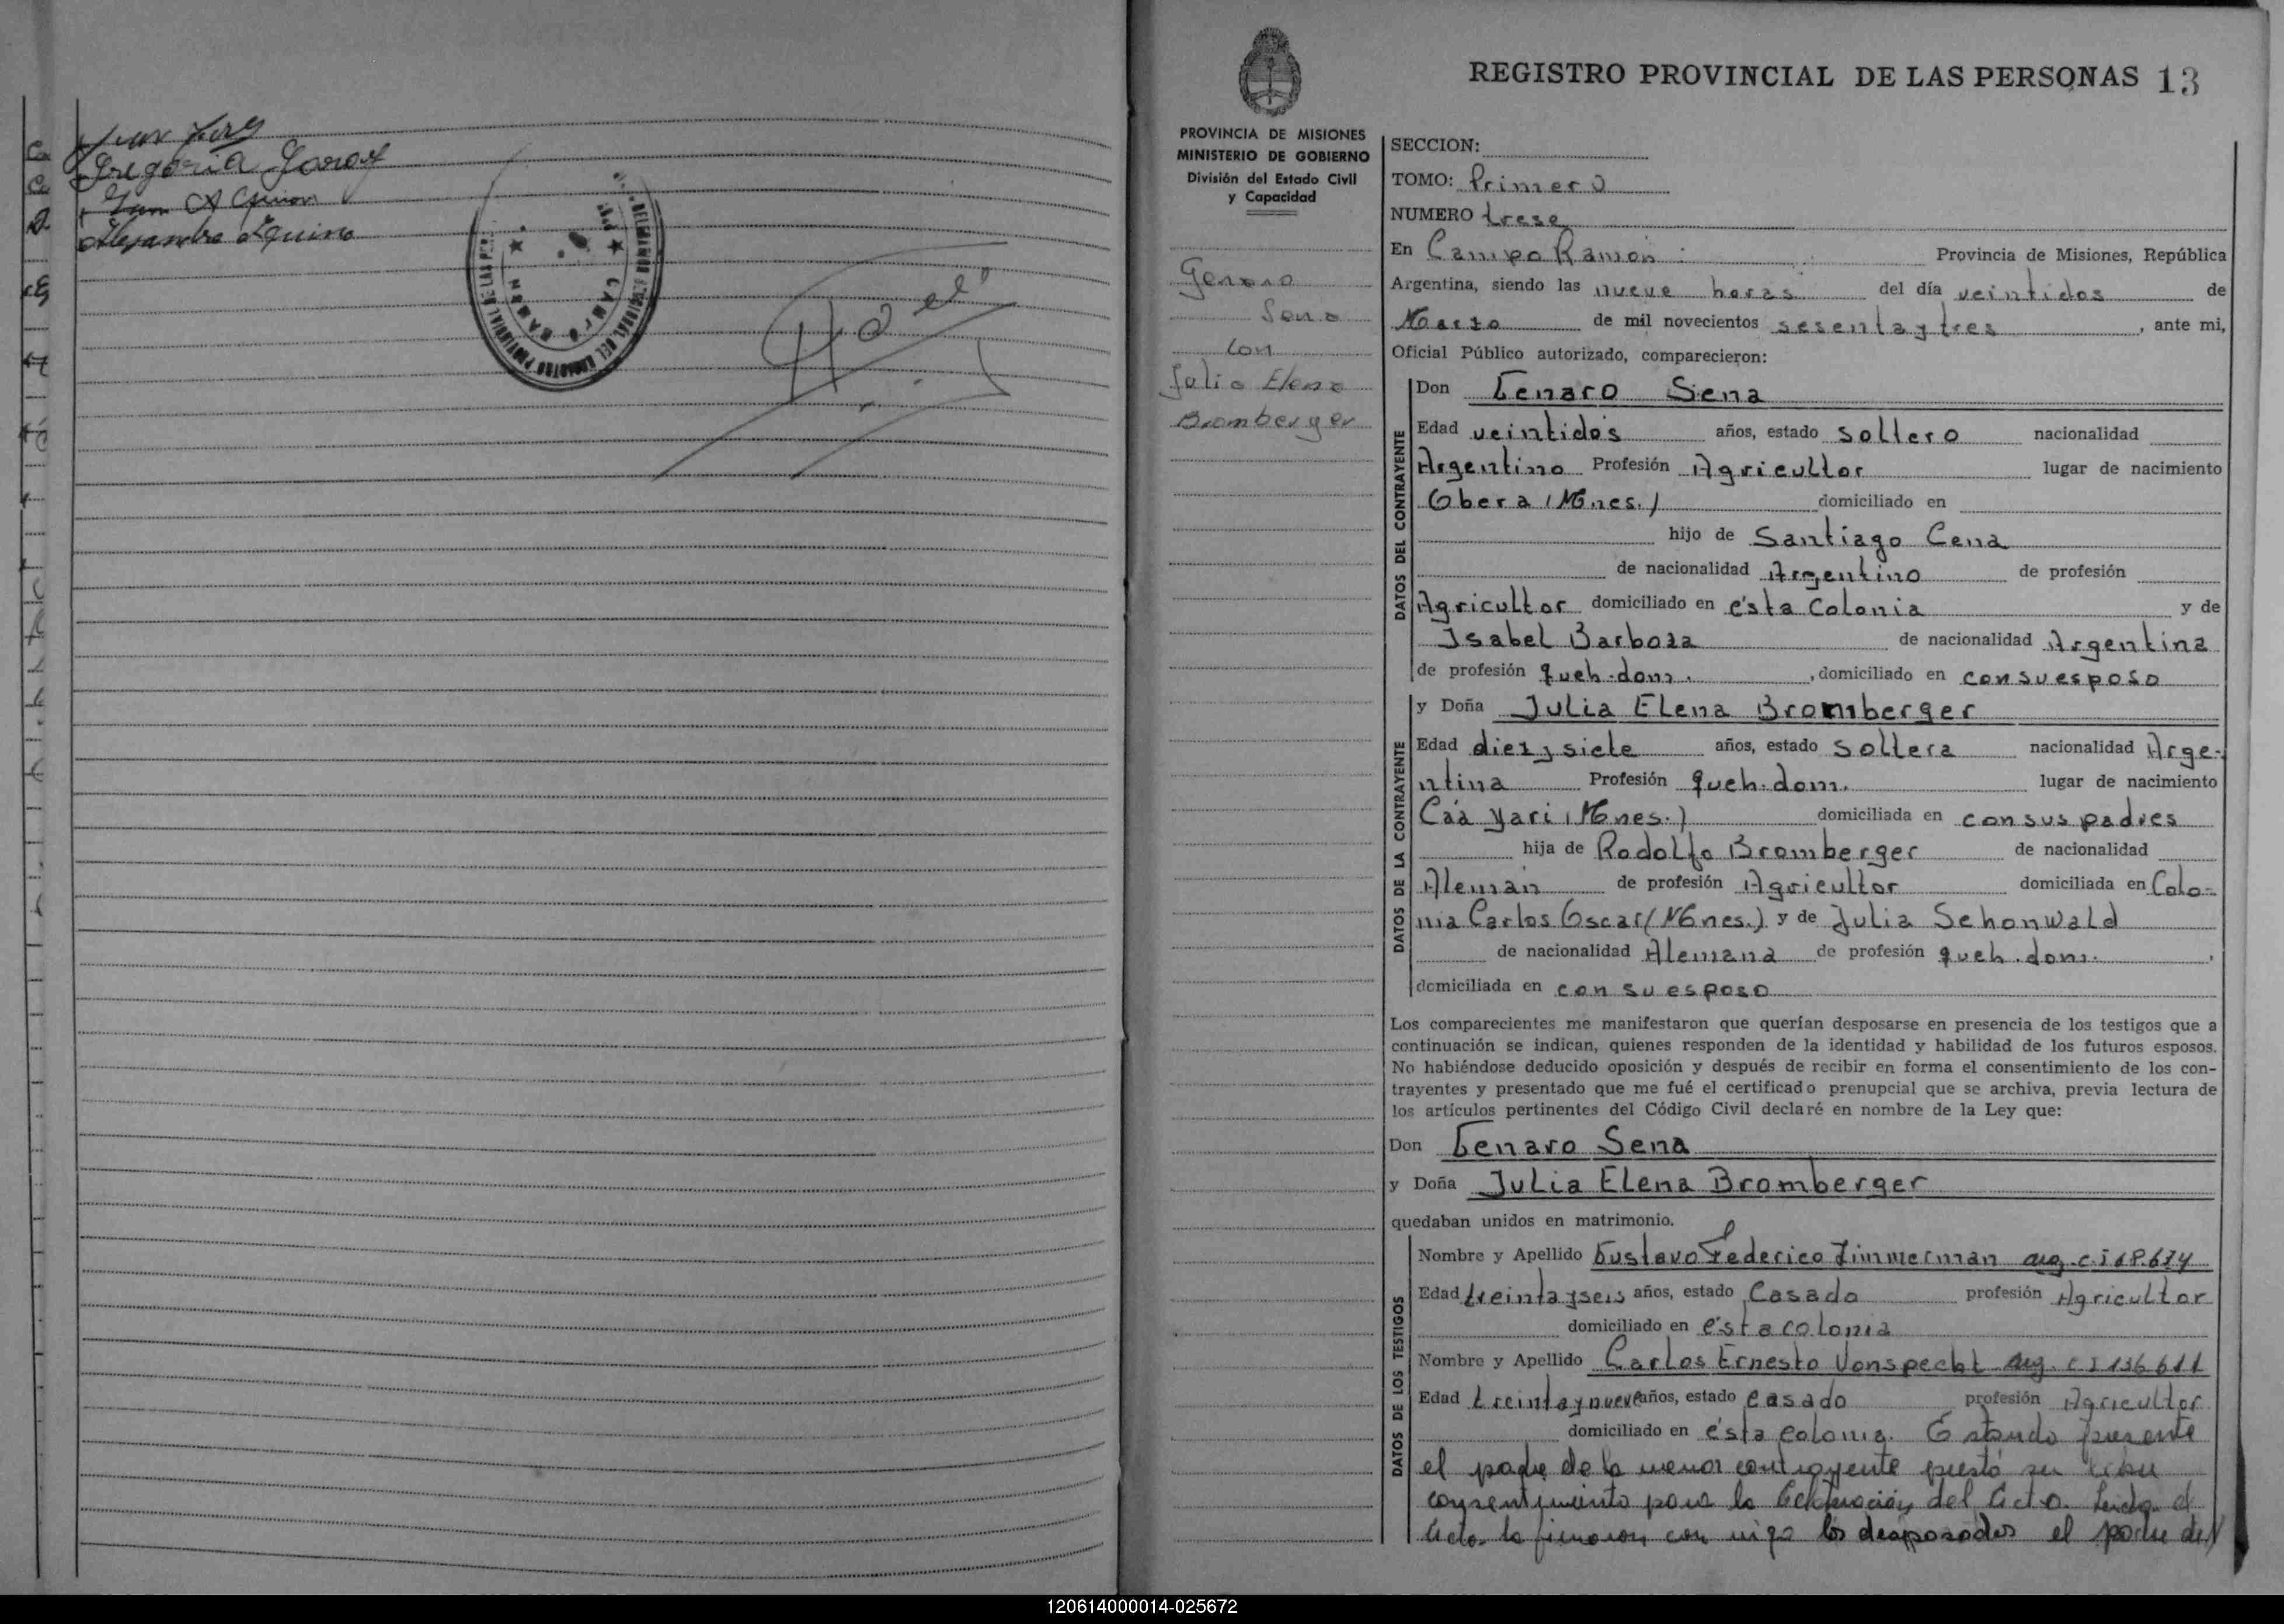 Gregoria Garay
Alejandro Aquino
REGISTRO PROVINCIAL DE LAS PERSONAS 13
PROVINCIA DE MISIONES
MINISTERIO DE GOBIERNO
División del Estado Civil
y Capacidad
Genaro
Sena
con
Julia Elena
Bromberger
SECCION:
TOMO: Primero
NUMERO trese
En Campo Ramón Provincia de Misiones, República
Argentina, siendo las nueve horas del día veintidos de
Marzo de mil novecientos sesenta y tres, ante mi,
Oficial Público autorizado, comparecieron:
DATOS DEL CONTRAYENTE
Don Genaro Sena
Edad veintidos años, estado soltero nacionalidad
Argentino Profesión Agricultor lugar de nacimiento
Obera (Mnes.) domiciliado en
hijo de Santiago Cena
de nacionalidad Argentino de profesión
Agricultor domiciliado en ésta Colonia y de
Isabel Barboza de nacionalidad Argentina
de profesión queh. dom. , domiciliado en con su esposo
DATOS DE LA CONTRAYENTE
y Doña Julia Elena Bromberger
Edad diez y siete años, estado soltera nacionalidad Arge-
ntina Profesión queh. dom. lugar de nacimiento
Cáa Yari (Mnes.) domiciliada en con sus padres
hija de Rodolfo Bromberger de nacionalidad
Alemán de profesión Agricultor domiciliada en Colo-
nia Carlos Oscar (Mnes.) y de Julia Schonwald
de nacionalidad Alemana de profesión queh. dom. ,
domiciliada en con su esposo
Los comparecientes me manifestaron que querían desposarse en presencia de los testigos que a
continuación se indican, quienes responden de la identidad y habilidad de los futuros esposos.
No habiéndose deducido oposición y después de recibir en forma el consentimiento de los con-
trayentes y presentado que me fué el certificado prenupcial que se archiva, previa lectura de
los artículos pertinentes del Código Civil declaré en nombre de la Ley que:
Don Genaro Sena
y Doña Julia Elena Bromberger
quedaban unidos en matrimonio.
DATOS DE LOS TESTIGOS
Nombre y Apellido Gustavo Federico Zimmerman arg. C.I
Edad treinta y seis años, estado Casado profesión Agricultor
domiciliado en ésta colonia
Nombre y Apellido Carlos Ernesto Vonspecht arg. C I 136 611
Edad treinta y nueve años, estado casado profesión Agricultor
domiciliado en ésta colonia. Estando presente
el padre de la menor contrayente prestó su
consentimiento para la celebración del Acto. Leida el
Acta la firmaron con migo los desposados el padre de
120614000014-025672